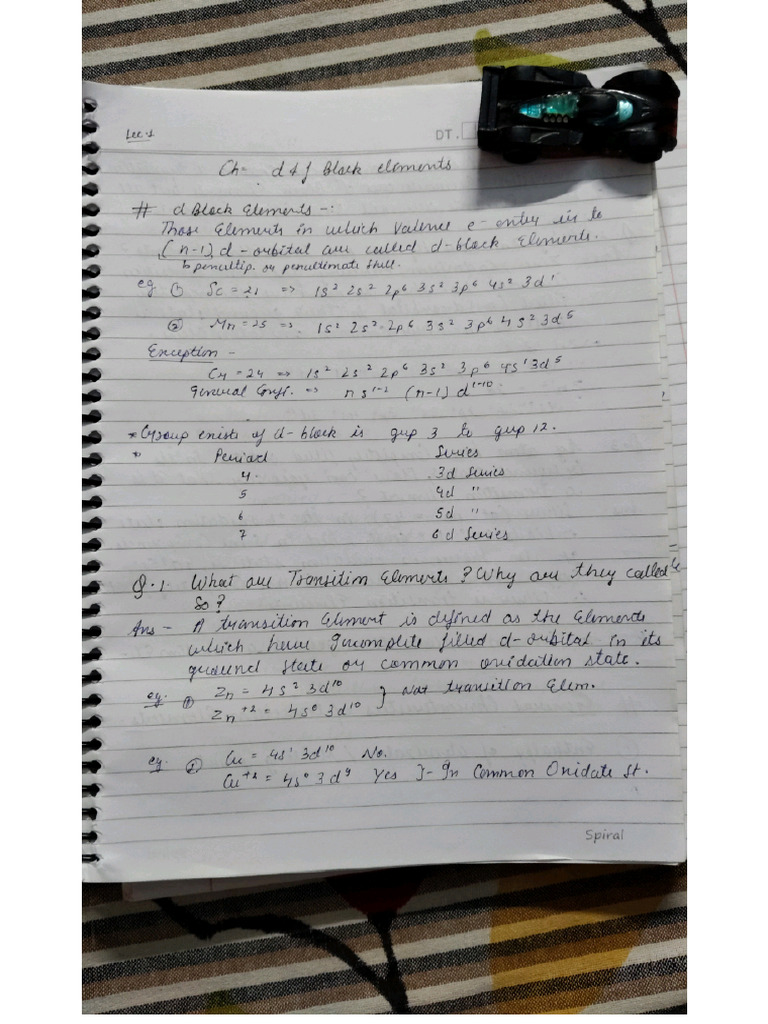 Lec-1
DT.
Ch= d & f Block elements
# d Block Elements -:
Those Elements in which valence e- enter in to
(n-1)d-orbital are called d-block Elements.
↳ penultip. or penultimate shell.
eg ① Sc = 21 => 1s² 2s² 2p⁶ 3s² 3p⁶ 4s² 3d¹
② Mn = 25 => 1s² 2s² 2p⁶ 3s² 3p⁶ 4s² 3d⁵
Exception -
Cr = 24 => 1s² 2s² 2p⁶ 3s² 3p⁶ 4s¹ 3d⁵
General Confi. => ns¹⁻² (n-1) d¹⁻¹⁰
* Group exists of d-block is grp 3 to grp 12.
* Period Series
4. 3d Series
5 4d "
6 5d "
7 6d Series
Q.1 What are Transition Elements? Why are they called
So?
Ans - A transition Element is defined as the Elements
which have Incomplete filled d-orbital in its
ground state or common oxidation state.
eg: ① Zn = 4s² 3d¹⁰ } Not transition Elem.
Zn⁺² = 4s⁰ 3d¹⁰
eg. ② Cu = 4s¹ 3d¹⁰ No.
Cu⁺² = 4s⁰ 3d⁹ Yes }- In Common Oxidate St.
Spiral